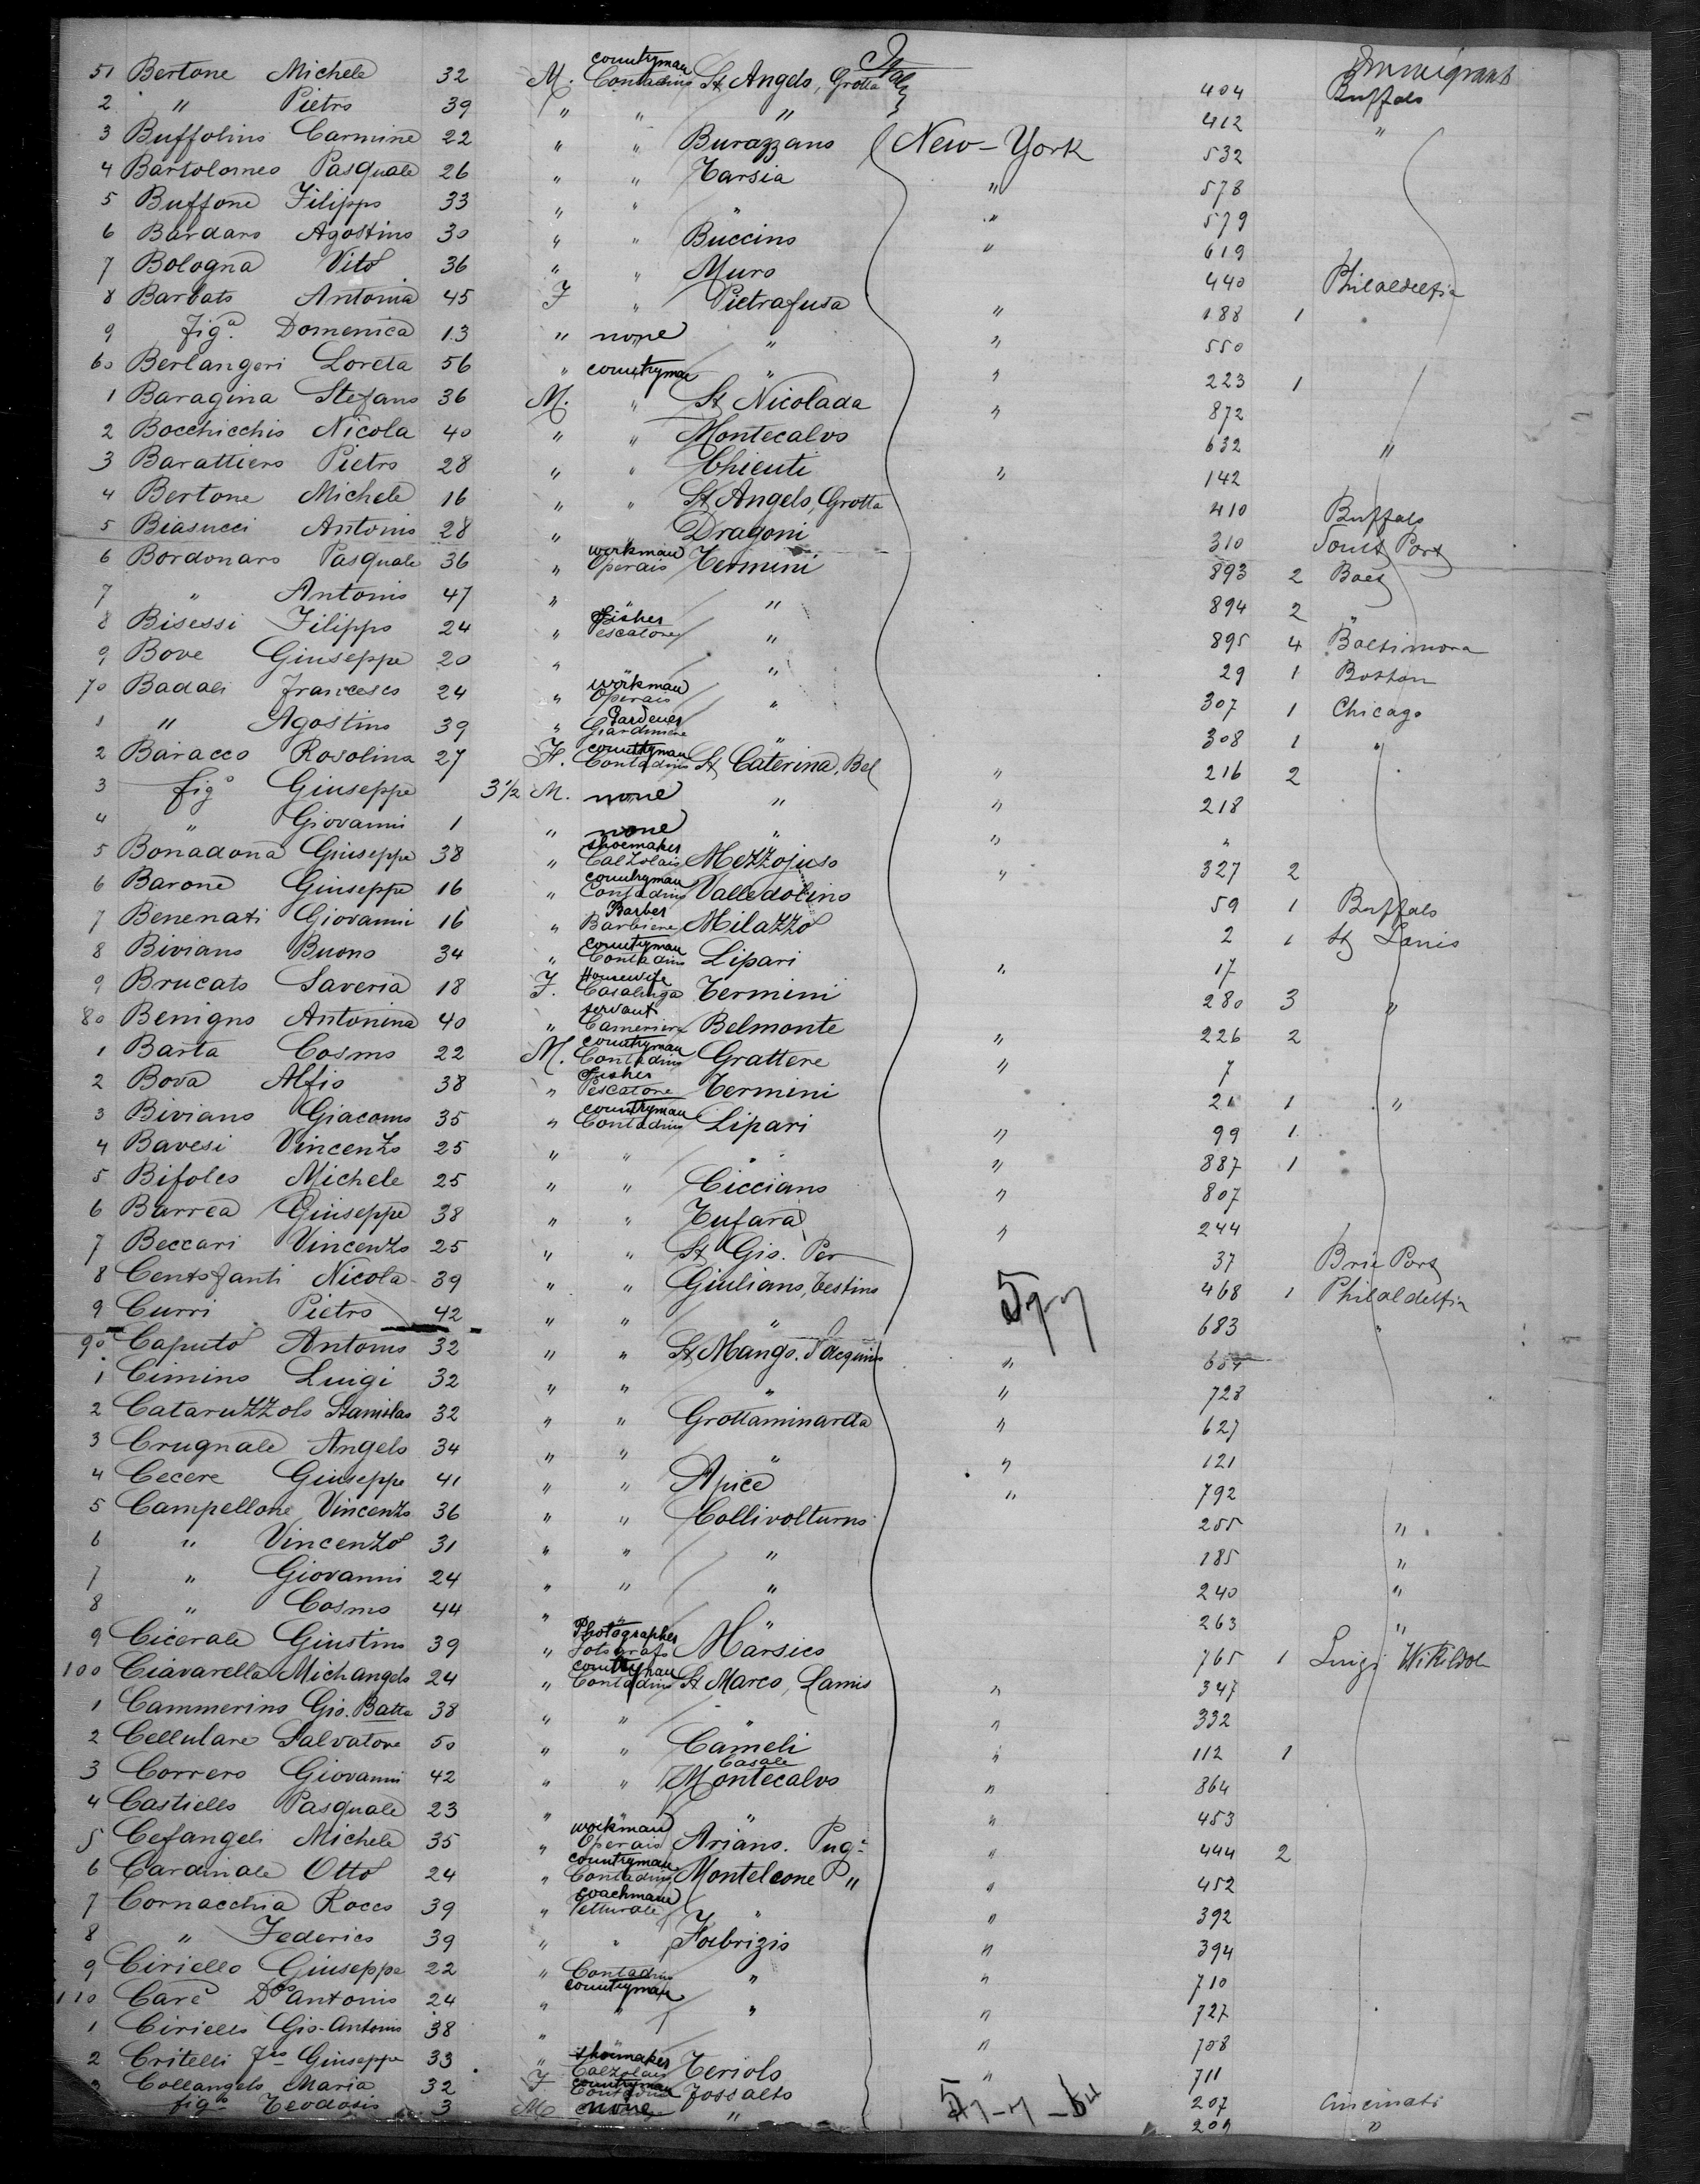 Italy Immigrants
51 Bertone Michele 32 M. countryman Contadino St Angelo, Grotta 404 Buffalo
2 " Pietro 39 " " " 412 "
3 Buffolino Carmine 22 " " Burazzano New-York 532
4 Bartolomeo Pasquale 26 " " Tarsia " 578
5 Buffone Filippo 33 " " " " 579
6 Bardaro Agostino 30 " " Buccino " 619
7 Bologna Vito 36 " " Muro 440 Philaldelfia
8 Barbato Antonia 45 F " Pietrafusa " 188 1
9 fig.a Domenica 13 " none " " 550
60 Berlangeri Loreta 56 " countryman " " 223 1
1 Baragina Stefano 36 M. " St Nicolada " 872
2 Bocchicchio Nicola 40 " " Montecalvo 632 "
3 Barattiero Pietro 28 " " Chieuti " 142
4 Bertone Michele 16 " " St Angelo, Grotta 410 Buffalo
5 Biasucci Antonio 28 " " Dragoni 310 Port
6 Bordonaro Pasquale 36 " workman Operaio Termini 893 2
7 " Antonio 47 " " " 894 2 "
8 Bisessi Filippo 24 " fisher Pescatore " 895 4 Baltimora
9 Bove Giuseppe 20 " " 29 1 Boston
70 Badali Francesco 24 " workman Operaio " 307 1 Chicago
1 " Agostino 39 " Gardener Giardiniere " 308 1 "
2 Baracco Rosolina 27 F. countryman Contadino St Caterina, Bel " 216 2
3 figo Giuseppe 3½ M. none " " 218
4 " Giovanni 1 " none " " "
5 Bonadona Giuseppe 38 " shoemaker Calzolaio Mezzojuso " 327 2
6 Barone Giuseppe 16 " countryman Contadino Valledolino 59 1 Buffalo
7 Benenati Giovanni 16 " Barber Barbiere Milazzo 2 1 St Louis
8 Biviano Buono 34 " countryman Contadino Lipari " 17
9 Brucato Saveria 18 F. Housewife Casalinga Termini 280 3 "
80 Benigno Antonina 40 " servant Cameriera Belmonte " 226 2
1 Barta Cosmo 22 M. countryman Contadino Grattere " 7
2 Bova Alfio 38 " fisher Pescatore Termini 21 1 "
3 Biviano Giacomo 35 " countryman Contadino Lipari " 99 1
4 Bavesi Vincenzo 25 " " " " 887 1
5 Bifolco Michele 25 " " Cicciano " 807
6 Barrea Giuseppe 38 " " Tufara " 244
7 Beccari Vincenzo 25 " " St Gio. Per 37 Brie Port
8 Centofanti Nicola 39 " " Giuliano, Testino 468 1 Philaldelfia
9 Curri Pietro 42 " " " 683 "
90 Caputo Antonio 32 " " St Mango. d'acquino " 654
1 Cimino Luigi 32 " " " " 728
2 Cataruzzolo Stanislao 32 " " Grottaminarda " 627
3 Crugnale Angelo 34 " " " " 121
4 Cecere Giuseppe 41 " " Apice " 792
5 Campellone Vincenzo 36 " " Collivolturno 255 "
6 " Vincenzo 31 " " " 185 "
7 " Giovanni 24 " " " 240 "
8 " Cosmo 44 " " " 263 "
9 Cicerale Giustino 39 " Photographer Fotografo Marsico 765 1 Luigi
100 Ciavarella Michangelo 24 " countryman Contadino St Marco, Lamis " 347
1 Cammerino Gio. Batta 38 " " " " 332
2 Cellulare Salvatore 50 " " Cameli " 112 1
3 Correro Giovanni 42 " " Casale Montecalvo " 864
4 Castiello Pasquale 23 " " " " 453
5 Cefangeli Michele 35 " workman Operaio Ariano. Pug. " 444 2
6 Cardinale Otto 24 " countryman Contadino Monteleone P " " 452
7 Cornacchia Rocco 39 " coachman Vetturale " " 392
8 " Federico 39 " " Fabrizio " 394
9 Ciriello Giuseppe 22 " Contadino countryman " " 710
110 Care Dco Antonio 24 " " " " 727
1 Ciriello Gio-Antonio 38 " " 708
2 Critelli Fco Giuseppe 33 " shoemaker Calzolaio Teriolo " 711
3 Collangelo Maria 32 F countryman Contadina Fossalto 207 Cincinati
figo Teodosio 3 M none " 209 "